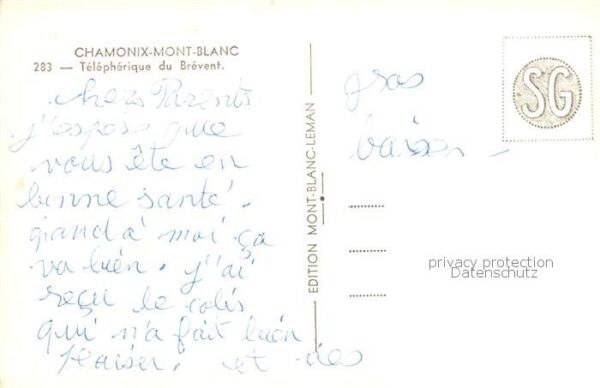 CHAMONIX-MONT-BLANC
283 — Téléphérique du Brévent.
chers Parents
j'espère que
vous ête en
bonne santé.
grand à moi ça
va bien. j'ai
reçu le colis
qui n'a fait bien
Plaisir. et des
gros
baiser
EDITION MONT-BLANC-LEMAN
SG
privacy protection
Datenschutz